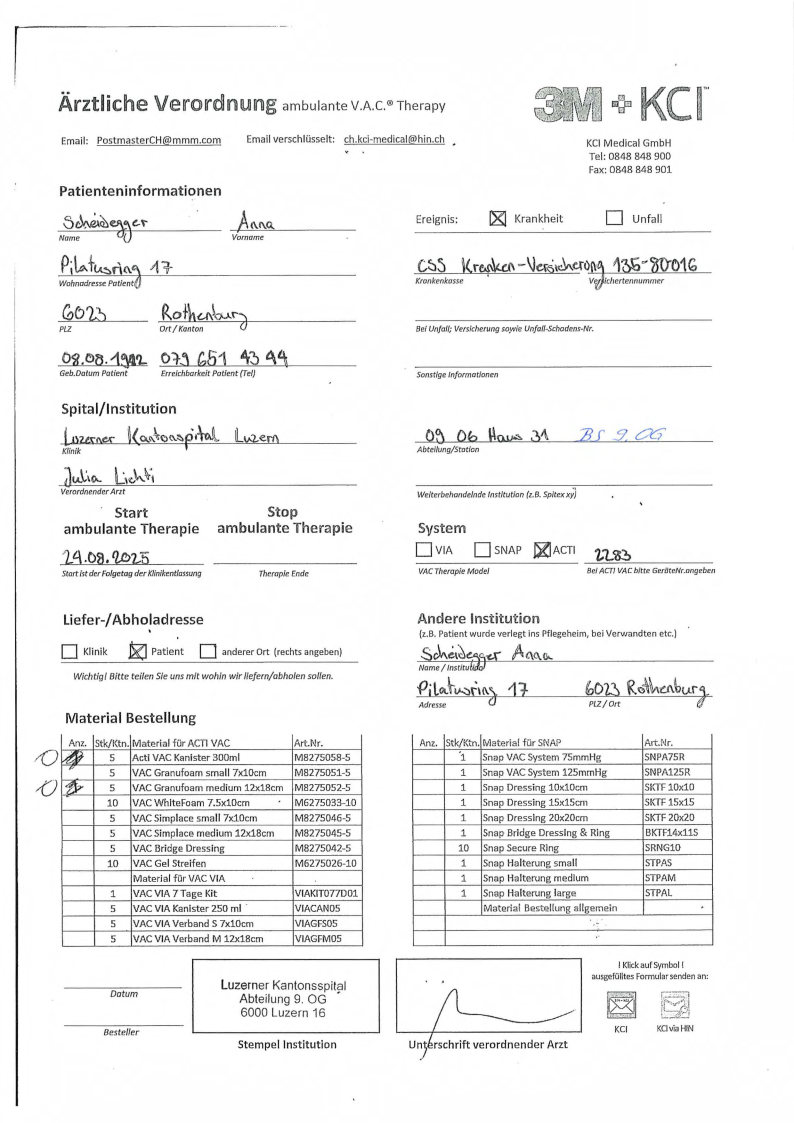 Ärztliche Verordnung ambulante V.A.C.® Therapy
3M + KCI™
Email: PostmasterCH@mmm.com Email verschlüsselt: ch.kci-medical@hin.ch
KCI Medical GmbH
Tel: 0848 848 900
Fax: 0848 848 901
Patienteninformationen
Scheidegger Anna
Name Vorname
Pilatusring 17
Wohnadresse Patient
6023 Rothenburg
PLZ Ort / Kanton
08.08.1942 079 651 43 44
Geb.Datum Patient Erreichbarkeit Patient (Tel)
Ereignis: ☒ Krankheit ☐ Unfall
CSS Kranken-Versicherung 135-80016
Krankenkasse Versichertennummer
Bei Unfall; Versicherung sowie Unfall-Schadens-Nr.
Sonstige Informationen
Spital/Institution
Luzerner Kantonsspital Luzern
Klinik
Julia Lichti
Verordnender Arzt
09 06 Haus 31 BS 9. OG
Abteilung/Station
Weiterbehandelnde Institution (z.B. Spitex xy)
Start ambulante Therapie
Stop ambulante Therapie
29.08.2025
Start ist der Folgetag der Klinikentlassung Therapie Ende
System
☐ VIA ☐ SNAP ☒ ACTI 2283
VAC Therapie Model Bei ACTI VAC bitte GeräteNr.angeben
Liefer-/Abholadresse
☐ Klinik ☒ Patient ☐ anderer Ort (rechts angeben)
Wichtig! Bitte teilen Sie uns mit wohin wir liefern/abholen sollen.
Andere Institution
(z.B. Patient wurde verlegt ins Pflegeheim, bei Verwandten etc.)
Scheidegger Anna
Name / Institution
Pilatusring 17 6023 Rothenburg
Adresse PLZ / Ort
Material Bestellung
Anz. Stk/Ktn. Material für ACTI VAC Art.Nr.
5 Acti VAC Kanister 300ml M8275058-5
5 VAC Granufoam small 7x10cm M8275051-5
5 VAC Granufoam medium 12x18cm M8275052-5
10 VAC WhiteFoam 7.5x10cm M6275033-10
5 VAC Simplace small 7x10cm M8275046-5
5 VAC Simplace medium 12x18cm M8275045-5
5 VAC Bridge Dressing M8275042-5
10 VAC Gel Streifen M6275026-10
Material für VAC VIA
1 VAC VIA 7 Tage Kit VIAKIT077D01
5 VAC VIA Kanister 250 ml VIACAN05
5 VAC VIA Verband S 7x10cm VIAGFS05
5 VAC VIA Verband M 12x18cm VIAGFM05
Anz. Stk/Ktn. Material für SNAP Art.Nr.
1 Snap VAC System 75mmHg SNPA75R
1 Snap VAC System 125mmHg SNPA125R
1 Snap Dressing 10x10cm SKTF 10x10
1 Snap Dressing 15x15cm SKTF 15x15
1 Snap Dressing 20x20cm SKTF 20x20
1 Snap Bridge Dressing & Ring BKTF14x11S
10 Snap Secure Ring SRNG10
1 Snap Halterung small STPAS
1 Snap Halterung medium STPAM
1 Snap Halterung large STPAL
Material Bestellung allgemein
Datum
Besteller
Luzerner Kantonsspital
Abteilung 9. OG
6000 Luzern 16
Stempel Institution
Unterschrift verordnender Arzt
! Klick auf Symbol !
ausgefülltes Formular senden an:
KCI KCI via HIN